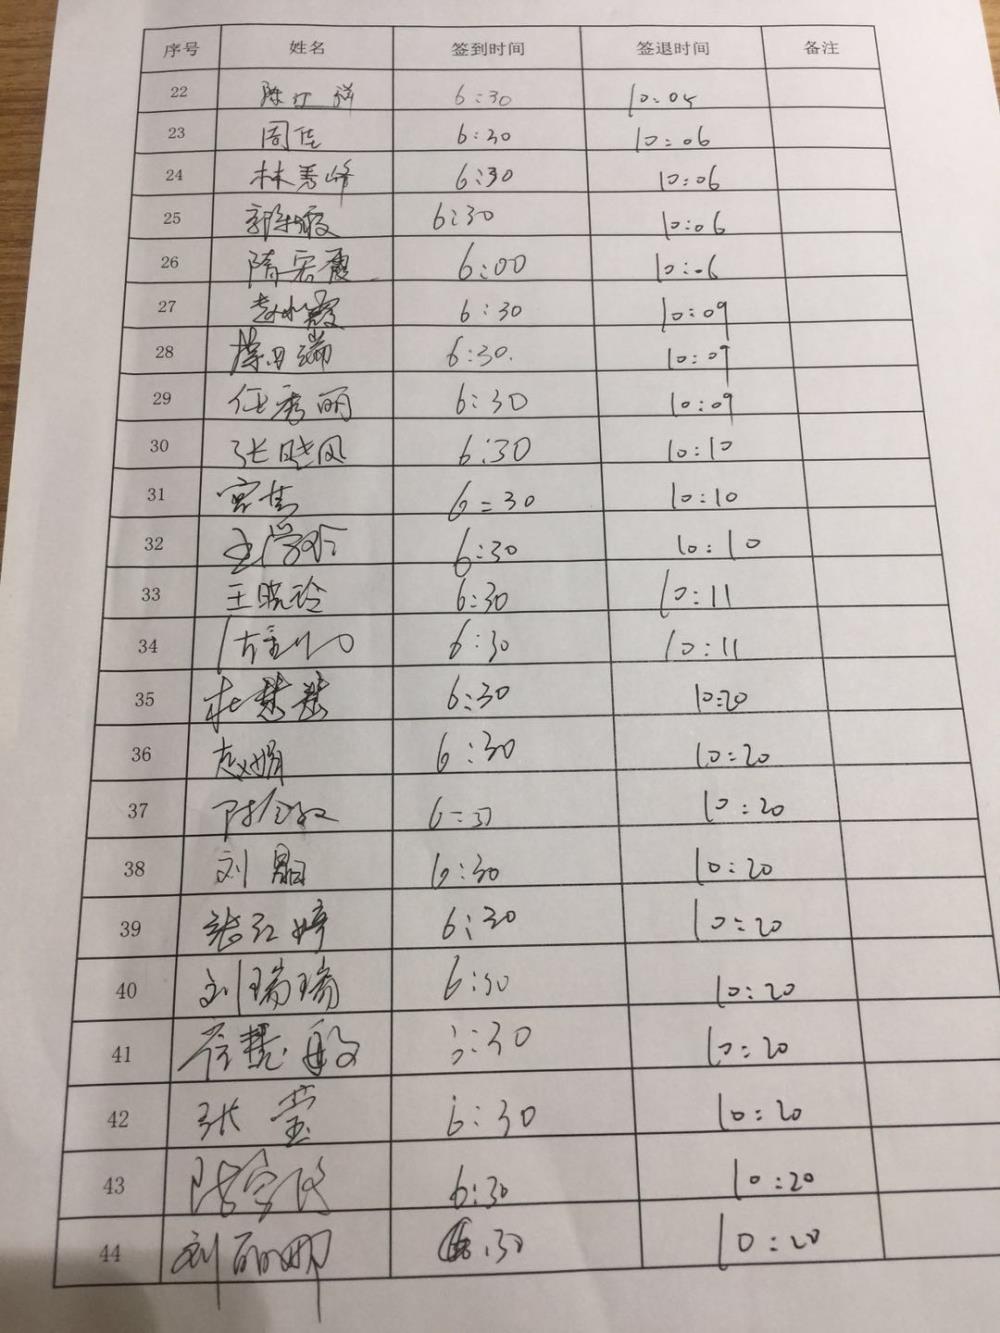 序号 姓名 签到时间 签退时间 备注
22 陈江祥 6:30 10:05
23 周佳 6:30 10:06
24 林秀峰 6:30 10:06
25 6:30 10:06
26 隋宏霞 6:00 10:06
27 赵冰霞 6:30 10:09
28 6:30. 10:09
29 任秀丽 6:30 10:09
30 张晓凤 6:30 10:10
31 宫 6:30 10:10
32 6:30 10:10
33 王晓玲 6:30 10:11
34 6:30 10:11
35 杜慧慧 6:30 10:20
36 赵娟 6:30 10:20
37 6:30 10:20
38 刘晶 6:30 10:20
39 张红婷 6:30 10:20
40 刘瑞瑞 6:30 10:20
41 崔慧敏 6:30 10:20
42 张莹 6:30 10:20
43 6:30 10:20
44 刘丽娜 6:30 10:20